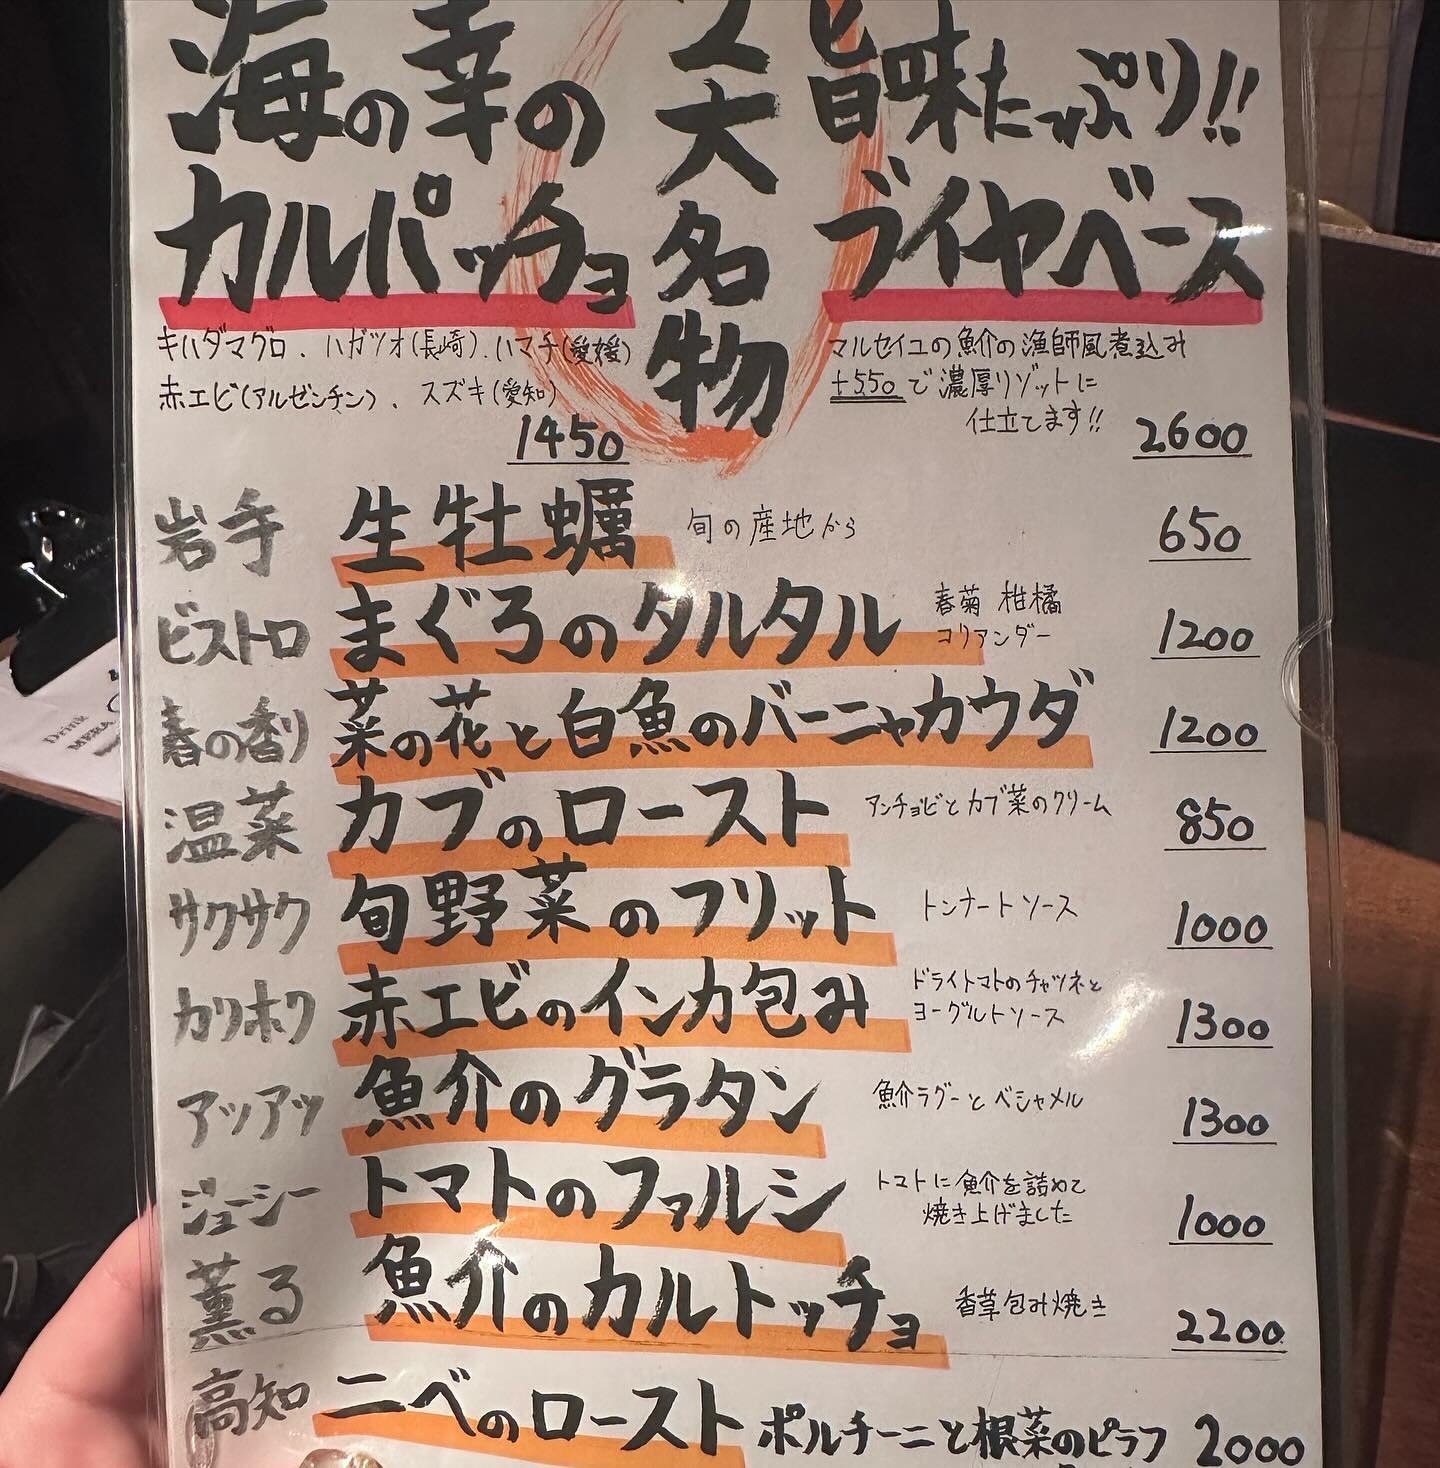 海の幸の
カルパッチョ
大名物
旨味たっぷり!!
ブイヤベース
キハダマグロ、ハガツオ(長崎)、ハマチ(愛媛)
赤エビ(アルゼンチン)、スズキ(愛知)
1450
マルセイユの魚介の漁師風煮込み
+550で濃厚リゾットに
仕立てます!!
2600
岩手 生牡蠣 旬の産地から 650
ビストロ まぐろのタルタル 春菊 柑橘
コリアンダー 1200
春の香り 菜の花と白魚のバーニャカウダ 1200
温菜 カブのロースト アンチョビとカブ菜のクリーム 850
サクサク 旬野菜のフリット トンナートソース 1000
カリホク 赤エビのインカ包み ドライトマトのチャツネと
ヨーグルトソース 1300
アツアツ 魚介のグラタン 魚介ラグーとベシャメル 1300
ジューシー トマトのファルシ トマトに魚介を詰めて
焼き上げました 1000
薫る 魚介のカルトッチョ 香草包み焼き 2200
高知 ニベのロースト ポルチーニと根菜のピラフ 2000
Drink